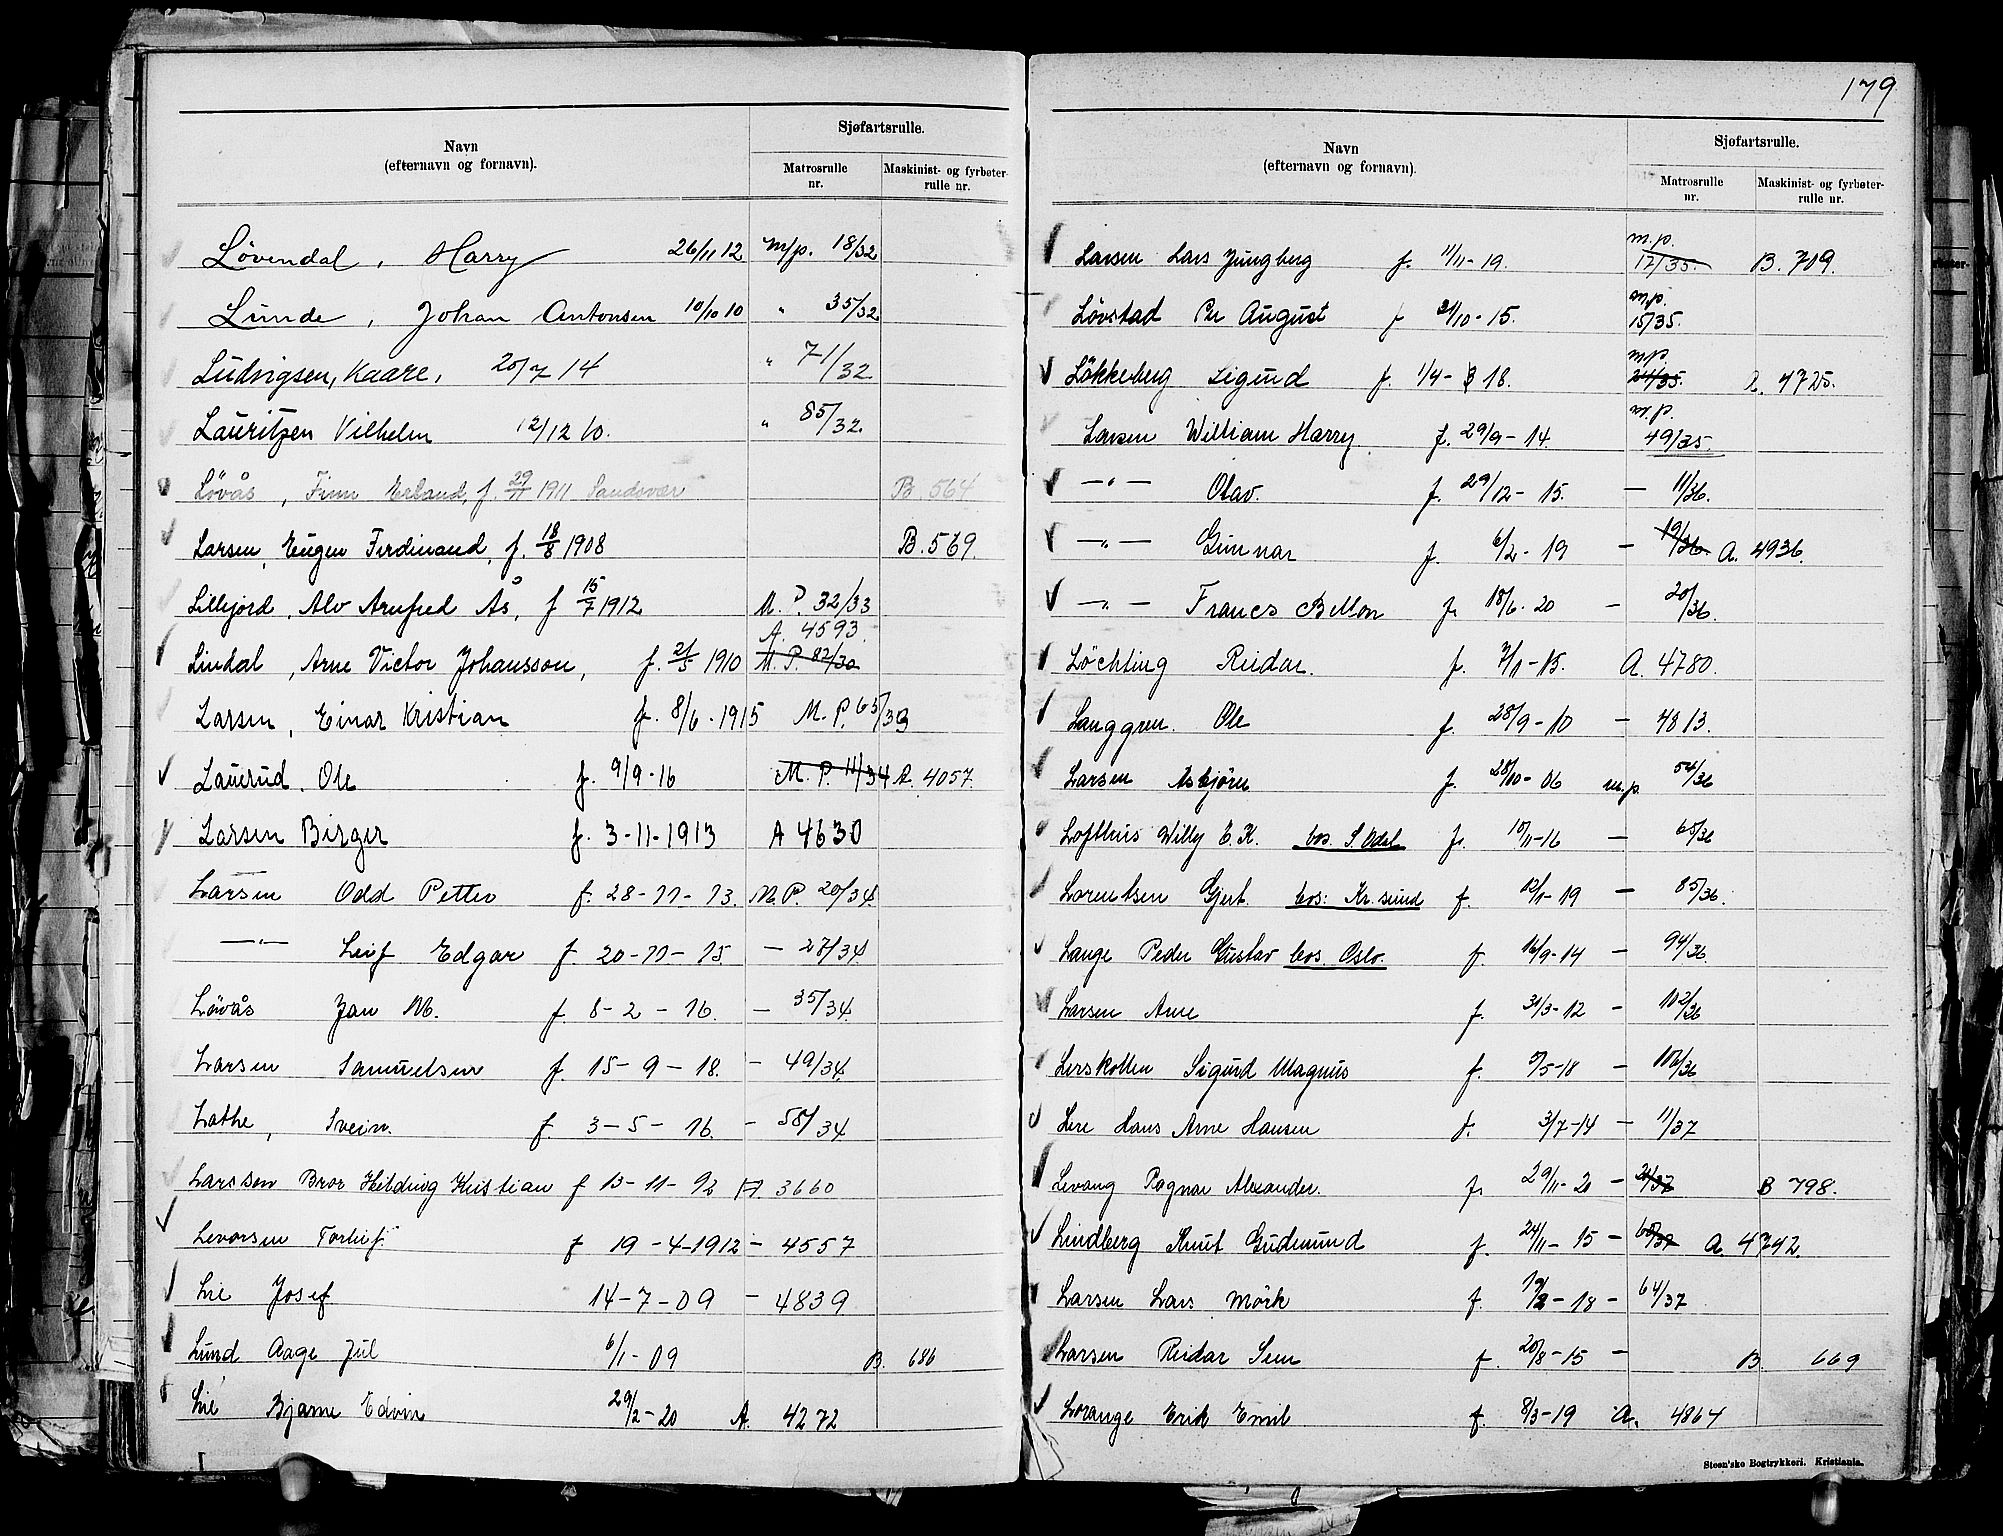 179
Navn
(efternavn og fornavn).
Sjøfartsrulle.
Matrosrulle nr.
Maskinist- og fyrbøter-rulle nr.
Lövendal, Harry 26/11 12 M/p. 18/32
Lunde, Johan Antonsen 10/10 10 " 35/32
Ludvigsen, Kaare, 20/7 14 " 71/32
Lauritzen Vilhelm 12/12 10. " 85/32.
Lövås, Finn Erland, f. 1911 Sandsvær B 564
Larsen, Eugen Ferdinand, f. 18/8 1908 B. 569
Lillejord, Alv Arnfred Ås, f 15/7 1912 M. P. 32/33
A. 4593.
Lindal, Arne Victor Johansson, f. 21/5 1910 M. P. 82/30
Larsen, Einar Kristian f. 8/6 - 1915 M. P. 65/33
Lauerud. Ole f. 9/9-16 M. P. 11/34 A. 4057.
Larsen Birger f. 3-11-1913 A 4630
Larsen Odd Petter f. 28-11-13. M. P. 20/34.
—"— Leif Edgar f. 20-11-15. — 27/34
Lövås Jan M. f. 8-2-16. — 35/34.
Larsen Samuelsen f. 15-9-18. — 49/34.
Lathe, Svein. f. 3-5-16. - 58/34
Larssen Bror Hilding Kristian f 13-11-92 A. 3660
Levorsen Torleif f 19-4-1912 - 4557
Lie Josef 14-7-09 - 4839
Lund Aage Jul 6/1-09 B. 686
Lie Bjarne Edvin 29/2-20 A. 4272
Navn
(efternavn og fornavn).
Sjøfartsrulle.
Matrosrulle nr.
Maskinist- og fyrbøter-rulle nr.
m.p.
Larsen Lars Jungberg f. 11/11-19. 12/35. B. 709.
m.p.
Lövstad Per August f 21/10-15. 15/35.
m.p.
Lökkeberg Sigurd f. 1/4-18. 24/35. 4725.
m.p.
Larsen William Harry. f. 29/9-14. 49/35.
—"— Olav. f. 29/12-15. — 11/36.
—"— Gunnar f. 6/2-19 — 19/36 A. 4936.
—"— Francs Bellon f. 18/6-20 — 20/36.
Löchting Reidar. f. 7/1-15. A. 4780.
Langgren. Ole f. 28/9-10 — 4813.
Larsen Asbjörn f. 28/10-06 m.p. 54/36
Lofthus Willy E. K. bos. S. Odal f. 10/11-16 — 65/36
Lorentsen Gjert. bos: Kr. sund f. 12/1-19 — 85/36.
Lange Peder Gustav bos. Oslo. f. 16/9-14 — 94/36.
Larsen Arne f. 31/3-12 — 102/36
Lerskollen Sigurd Magnus f. 5/5-18 — 106/36
Lere Hans Arne Hansen f. 3/7-14 — 11/37
Levang Ragnar Alexander. f. 29/11-20 — 21/37 B 798.
Lindberg Knut Gudmund f. 24/11-15 — 60/37 A 4742.
Larsen Lars Mörk f. 19/2-18 - 64/37
Larsen Reidar Sem f. 20/8-15 — B. 669
Lorange Erik Emil f. 8/3-19 A. 4864
Steen'ske Bogtrykkeri. Kristiania.